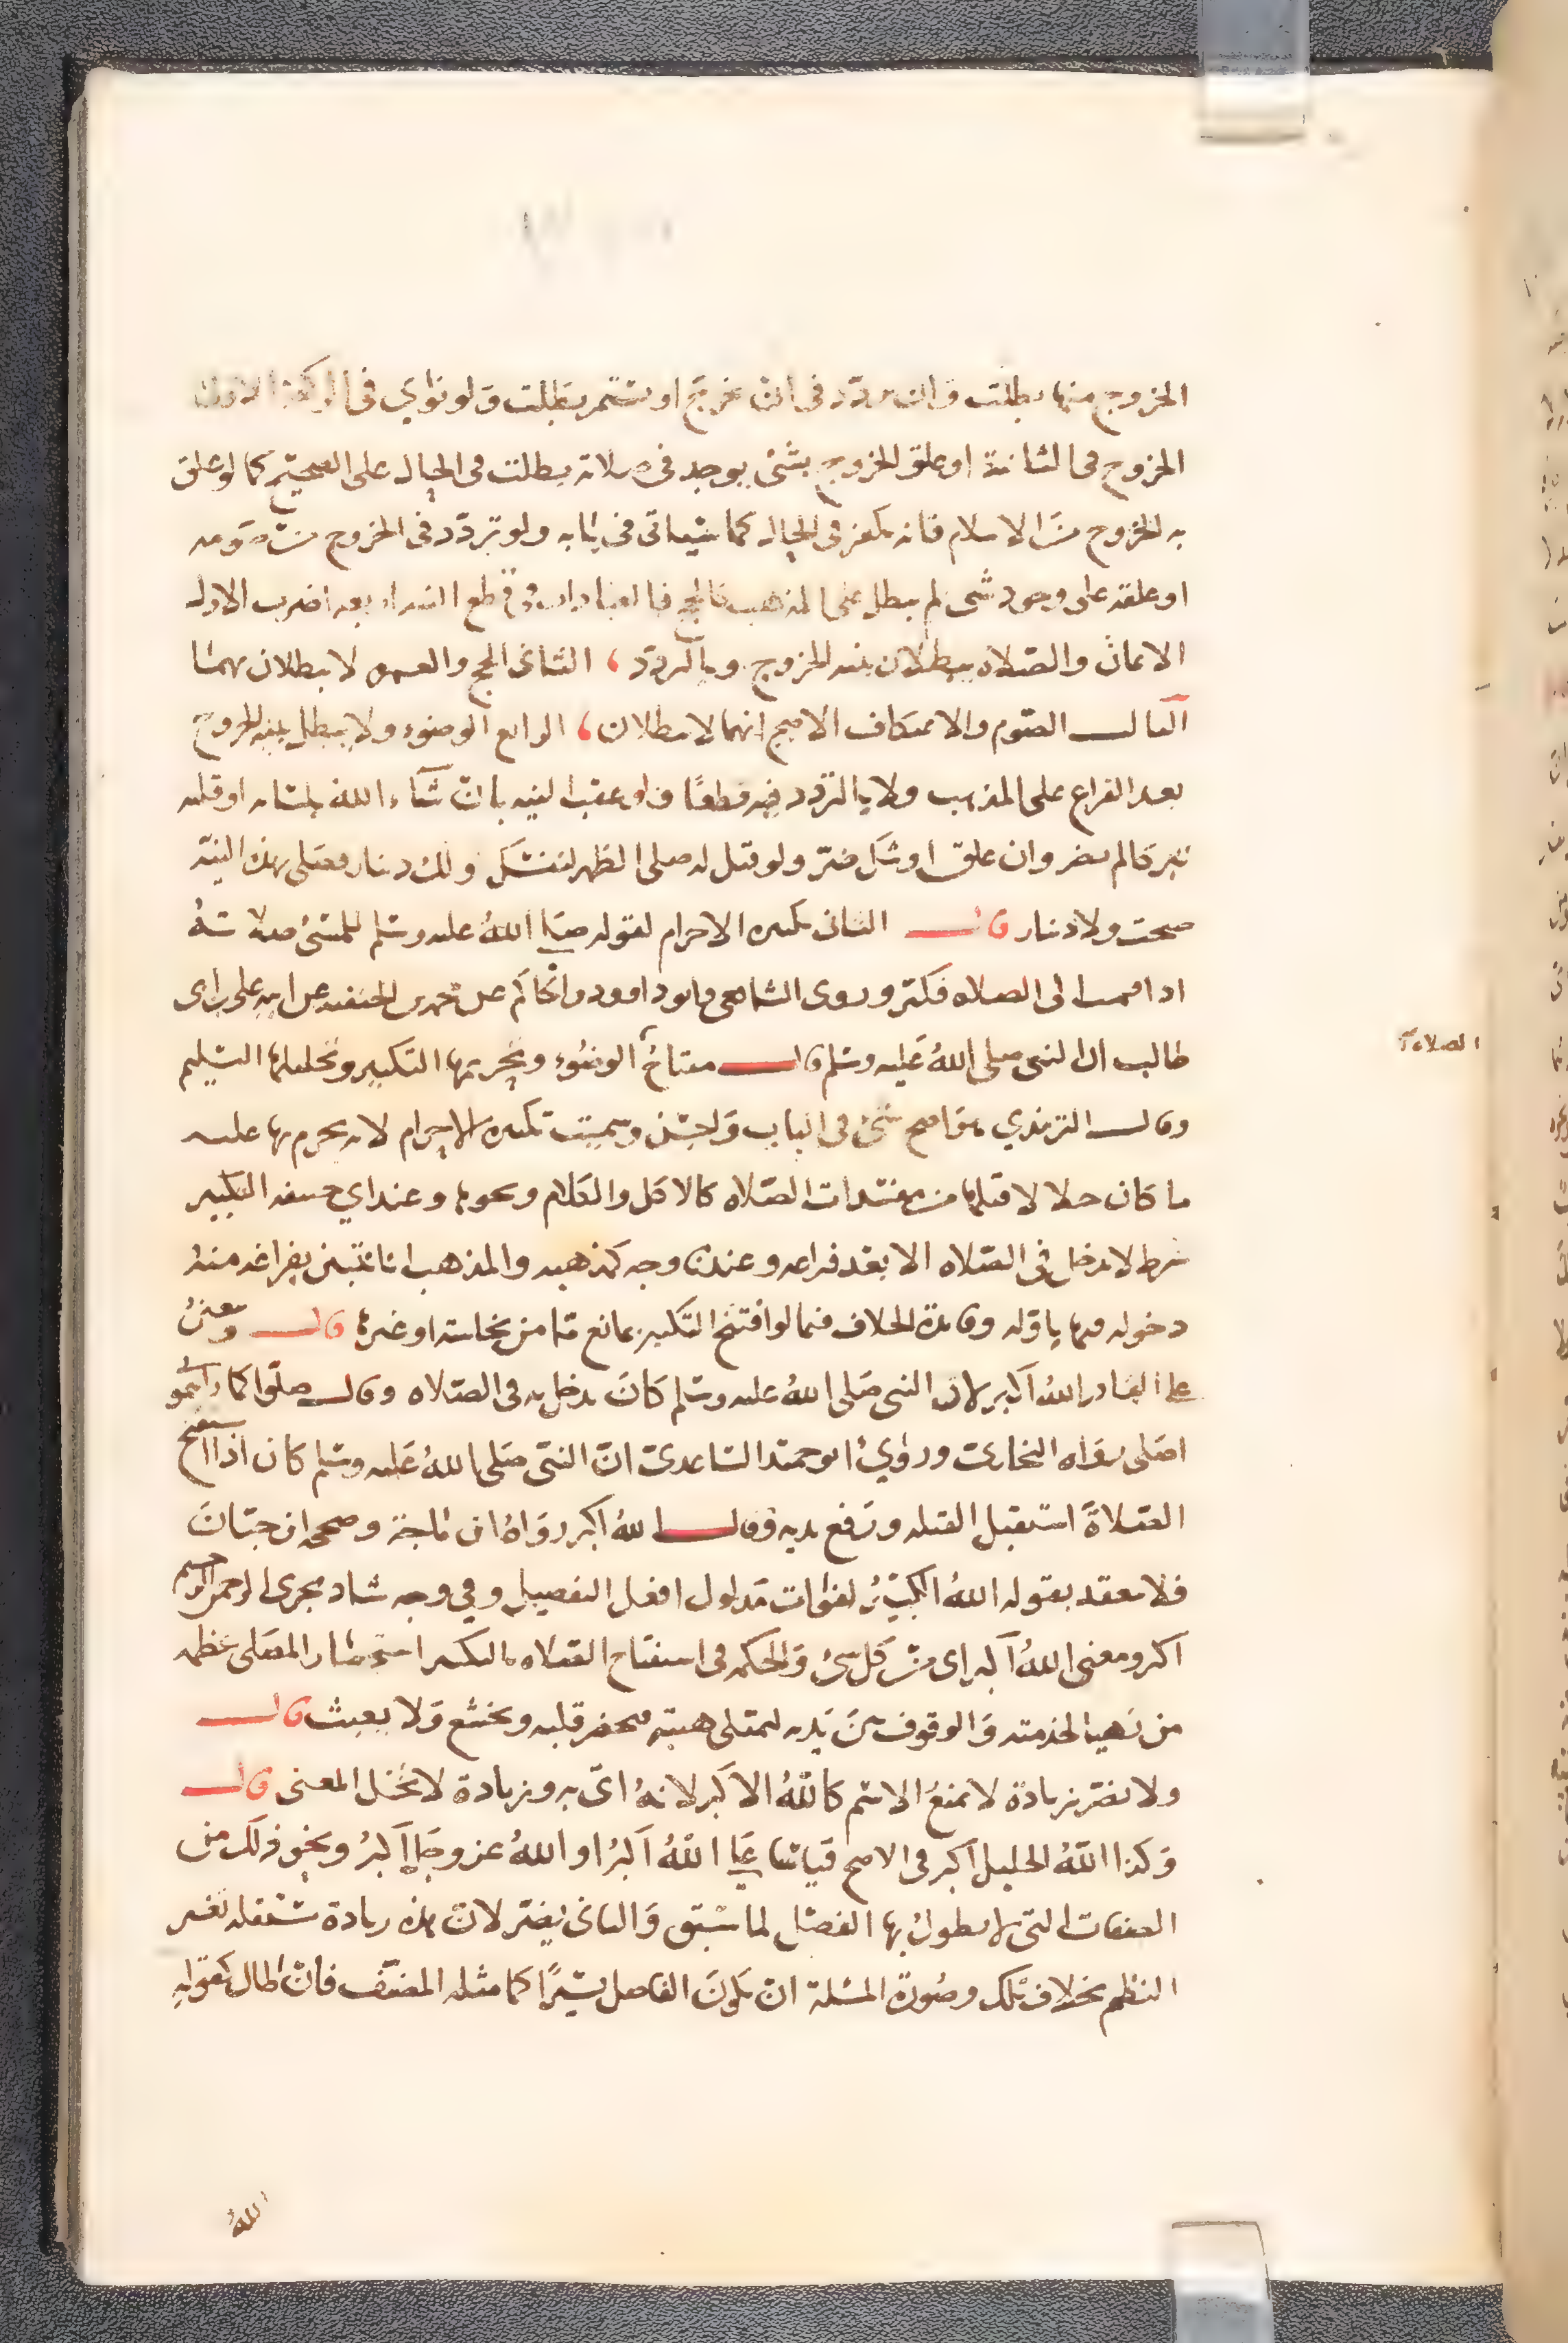 الخروج منها بطلت وان تردد في ان يخرج او يستمر بطلت ولو نوي في الركعة الاولى
الخروج في الثانية او علق الخروج بشئ يوجد في صلاته بطلت في الحال على الصحيح كما لو علق
به الخروج من الاسلام فانه يكفر في الحال كما سياتي في بابه ولو تردد في الخروج من صومه
او علقه على وجود شئ لم يبطل على المذهب كالحج فالعبادات في قطع النيه اربعه اضرب الاول
الايمان والصلاه يبطلان بنيه الخروج وبالتردد، الثاني الحج والعمره لا يبطلان بهما
الثالث الصوم والاعتكاف الاصح انهما لا يبطلان، الرابع الوضوء ولا يبطل بنيه الخروج
بعد الفراغ على المذهب ولا بالتردد فيه قطعًا ولو عقب النيه بان شاء الله بلسانه او قلبه
تبركا لم يضر وان علق او شك ضرّ ولو قيل له صلى الظهر لنفسك ولك دينار فصلى بهذه النيّة
صحت ولا دينار قال الثاني تكبيره الاحرام لقوله صلى الله عليه وسلم للمسئ صلاته
اذا قمت الى الصلاه فكبّر وروى الشافعي وابو داوود والحاكم عن محمد بن الحنفيه عن ابيه علي بن ابي
طالب ان النبي صلى الله عليه وسلم قال مفتاح الوضوء وتحريمها التكبير وتحليلها التسليم
الصلاة
وقال الترمذي هو اصح شئ في الباب واحسن وسميت تكبيره الاحرام لانه يحرم بها عليه
ما كان حلالا قبلها من مفسدات الصلاه كالاكل والكلام ونحوها وعند ابي حنيفه التكبير
شرط لا يدخل في الصلاه الا بعد فراغه وعندنا وجه كمذهبه والمذهب انا نتبين بفراغه منه
دخوله فيها باوله وفائدة الخلاف فيما لو افتتح التكبير بمانع ما من نجاسة او غيرها قال ويتعين
على القادر الله اكبر لان النبي صلى الله عليه وسلم كان يدخل به في الصلاه وقال صلّوا كما رايتموني
اصلى رواه البخاري وروى ابو حميد الساعدي انّ النبي صلى الله عليه وسلم كان اذا استفتح
الصلاة استقبل القبله ورفع يديه وقال الله اكبر رواه ابن ماجة وصححه ابن حبّان
فلا ينعقد بقوله الله الكبير لفوات مدلول افعل التفضيل وفي وجه شاذ يجزي الرحمن الرحيم
اكبر ومعنى الله اكبر اي من كل شئ والحكمه في استفتاح الصلاه بالتكبير استحضار المصلى عظمه
من تهيا لخدمته والوقوف بين يديه ليمتلى هيبة فيحضر قلبه ويخشع ولا يعبث قال
ولا تضر زيادة لا تمنع الاسم كالله الاكبر لانه اتى به وبزيادة لا تخل المعنى قال
وكذا الله الجليل اكبر في الاصح قياسًا على الله اكبر او الله عز وجل اكبر ونحو ذلك من
الصفات التي لا يطول بها الفصل لما سبق والثاني يضر لان هذه زيادة مستقله تغير
النظم بخلاف تلك وصورة المسئلة ان يكون الفاصل يسيرًا كما مثله المصنف فان اطال كقوله
الله